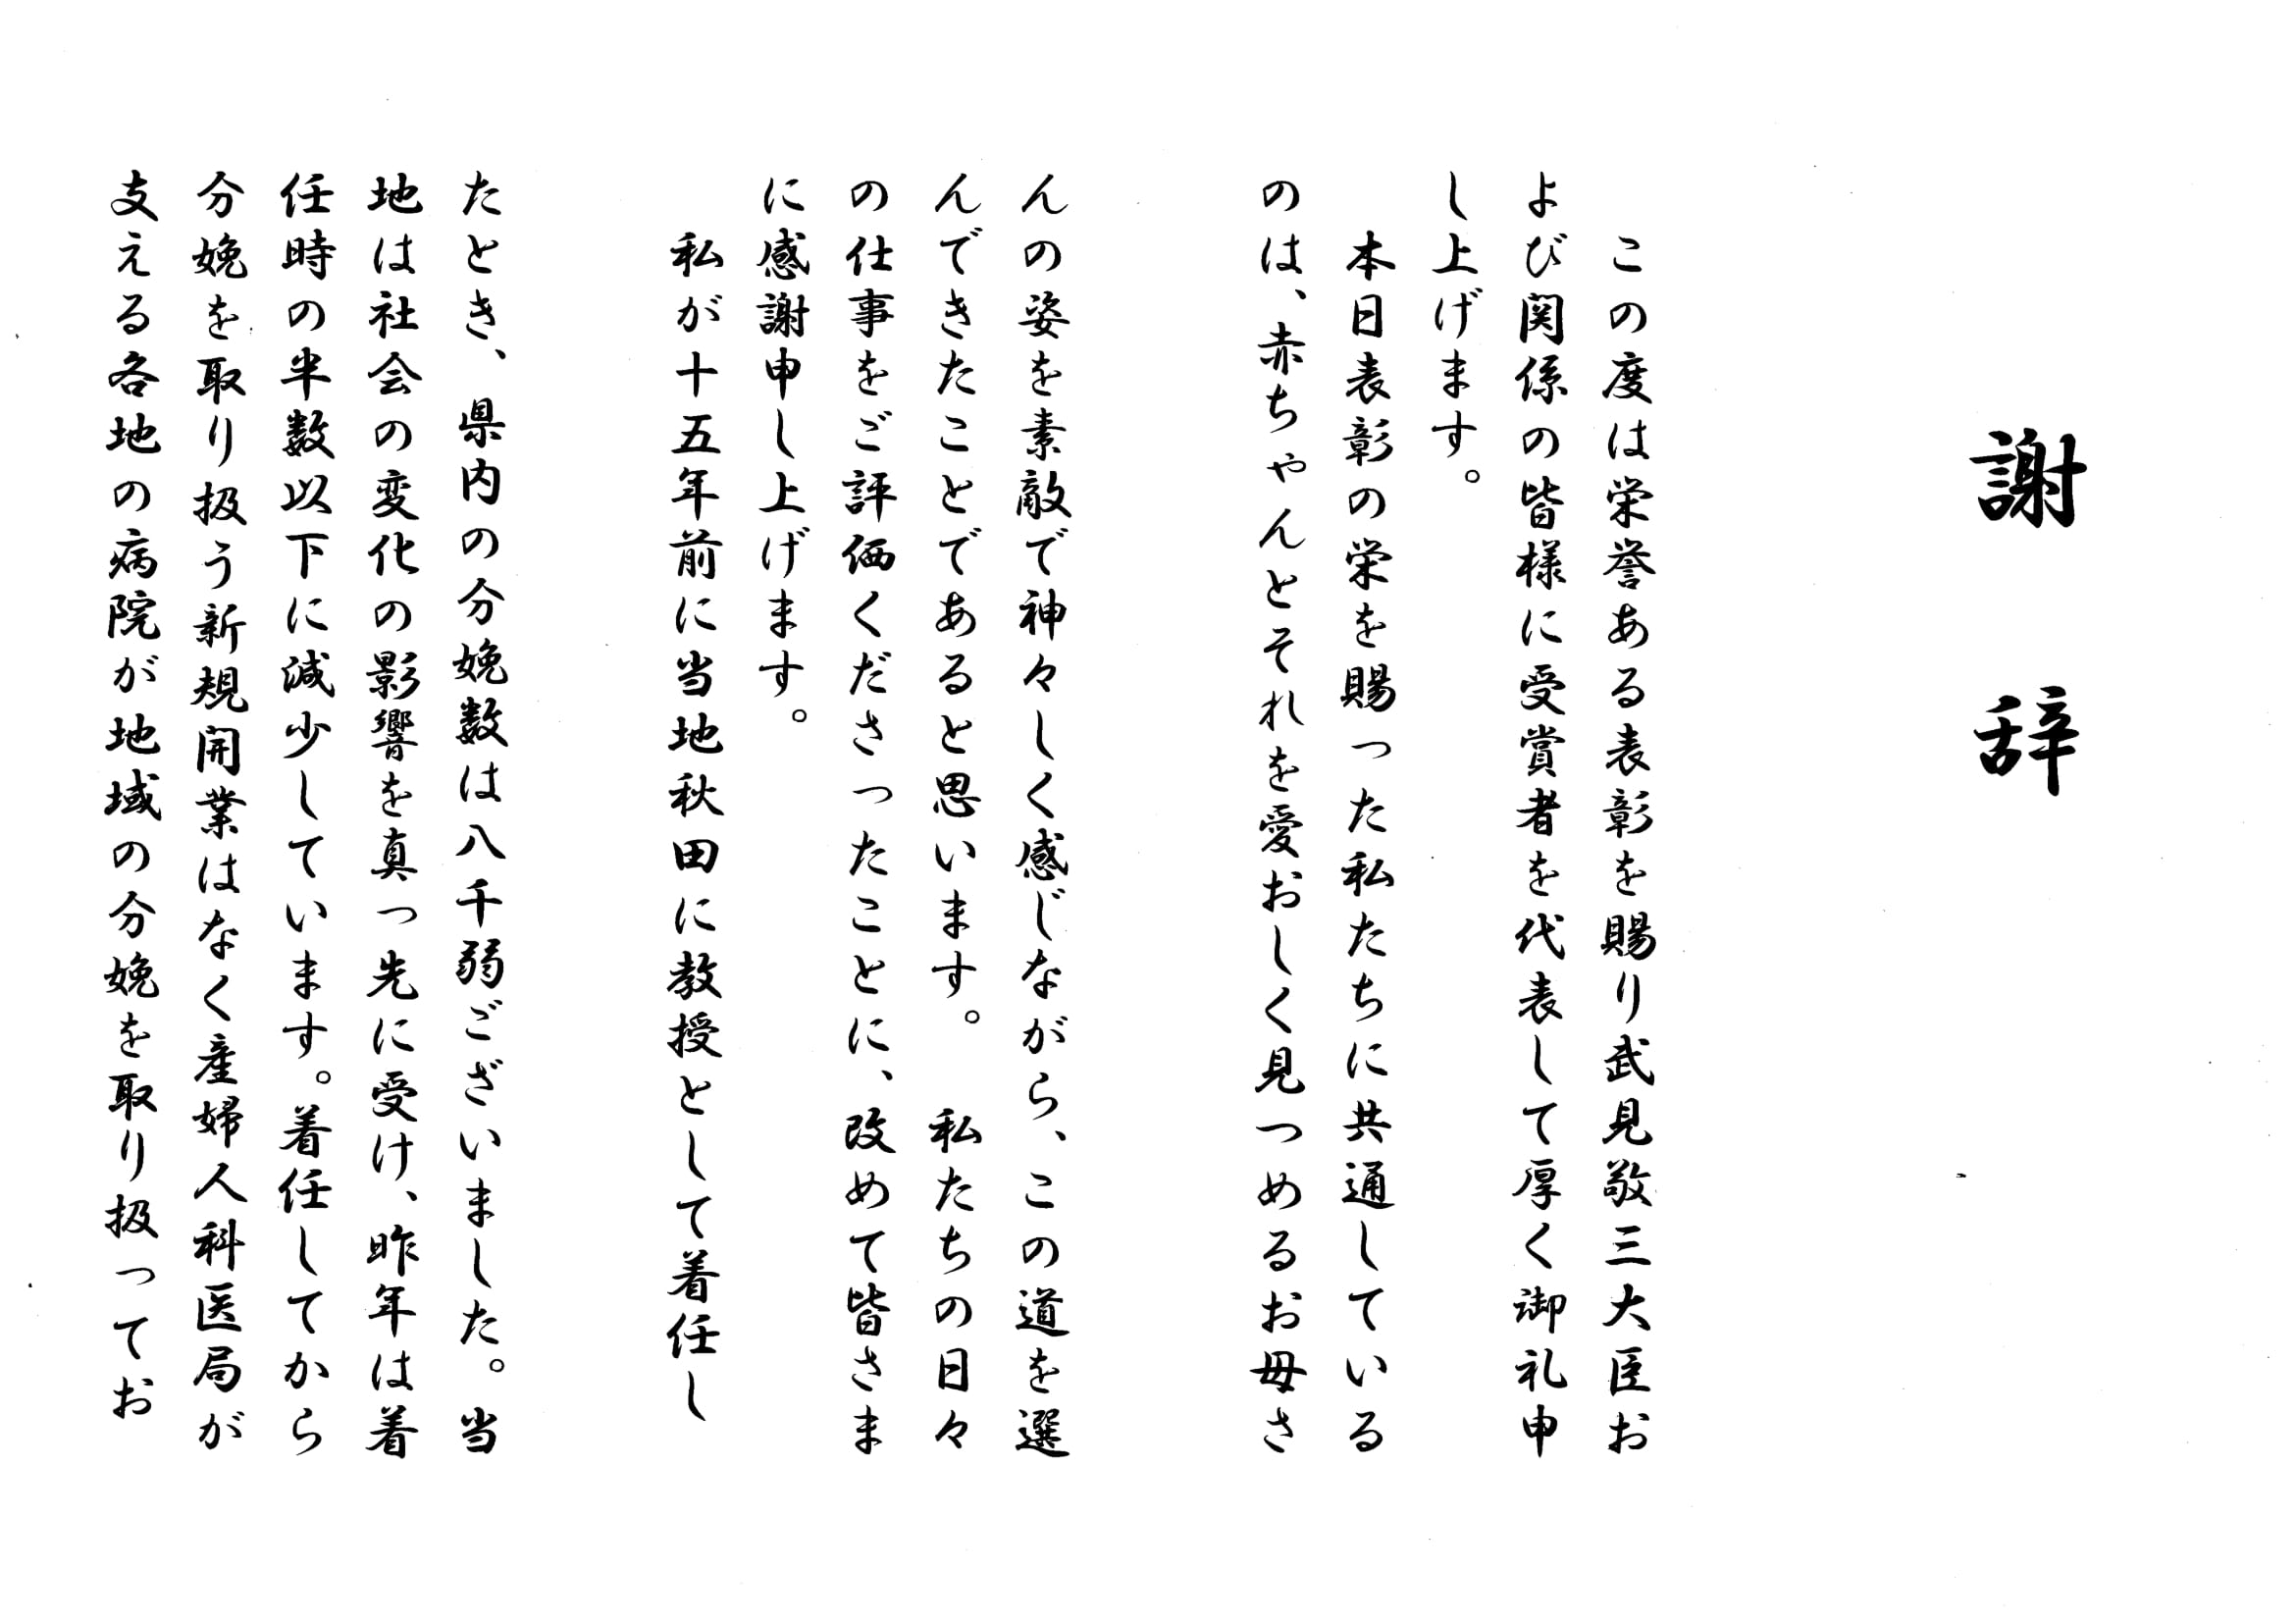 謝辞
この度は栄誉ある表彰を賜り武見敬三大臣お
よび関係の皆様に受賞者を代表して厚く御礼申
し上げます。
本日表彰の栄を賜った私たちに共通している
のは、赤ちゃんとそれを愛おしく見つめるお母さ
んの姿を素敵で神々しく感じながら、この道を選
んできたことであると思います。　私たちの日々
の仕事をご評価くださったことに、改めて皆さま
に感謝申し上げます。
私が十五年前に当地秋田に教授として着任し
たとき、県内の分娩数は八千弱ございました。当
地は社会の変化の影響を真っ先に受け、昨年は着
任時の半数以下に減少しています。着任してから
分娩を取り扱う新規開業はなく産婦人科医局が
支える各地の病院が地域の分娩を取り扱ってお